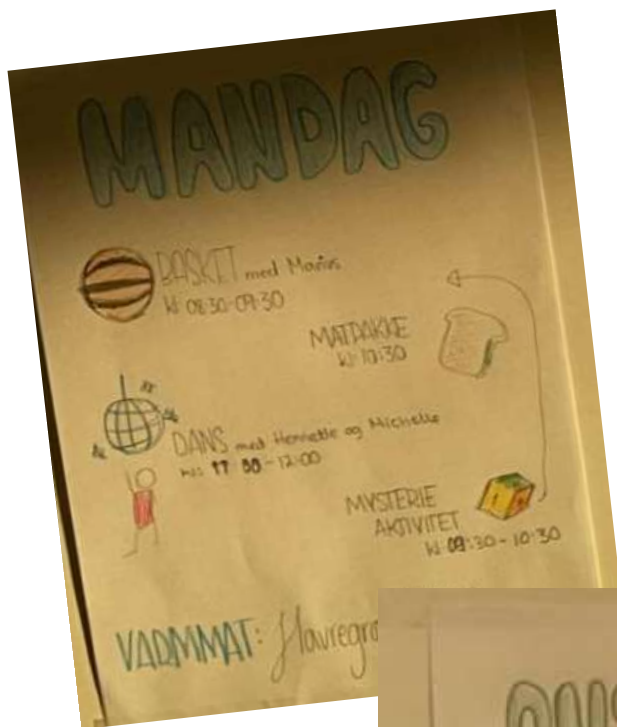 MANDAG
BASKET med Marius
kl 08:30-09:30
MATPAKKE
kl: 10:30
DANS med Henriette og Michelle
11 00-12:00
MYSTERIE
AKTIVITET
kl 09:30-10:30
VARMMAT: